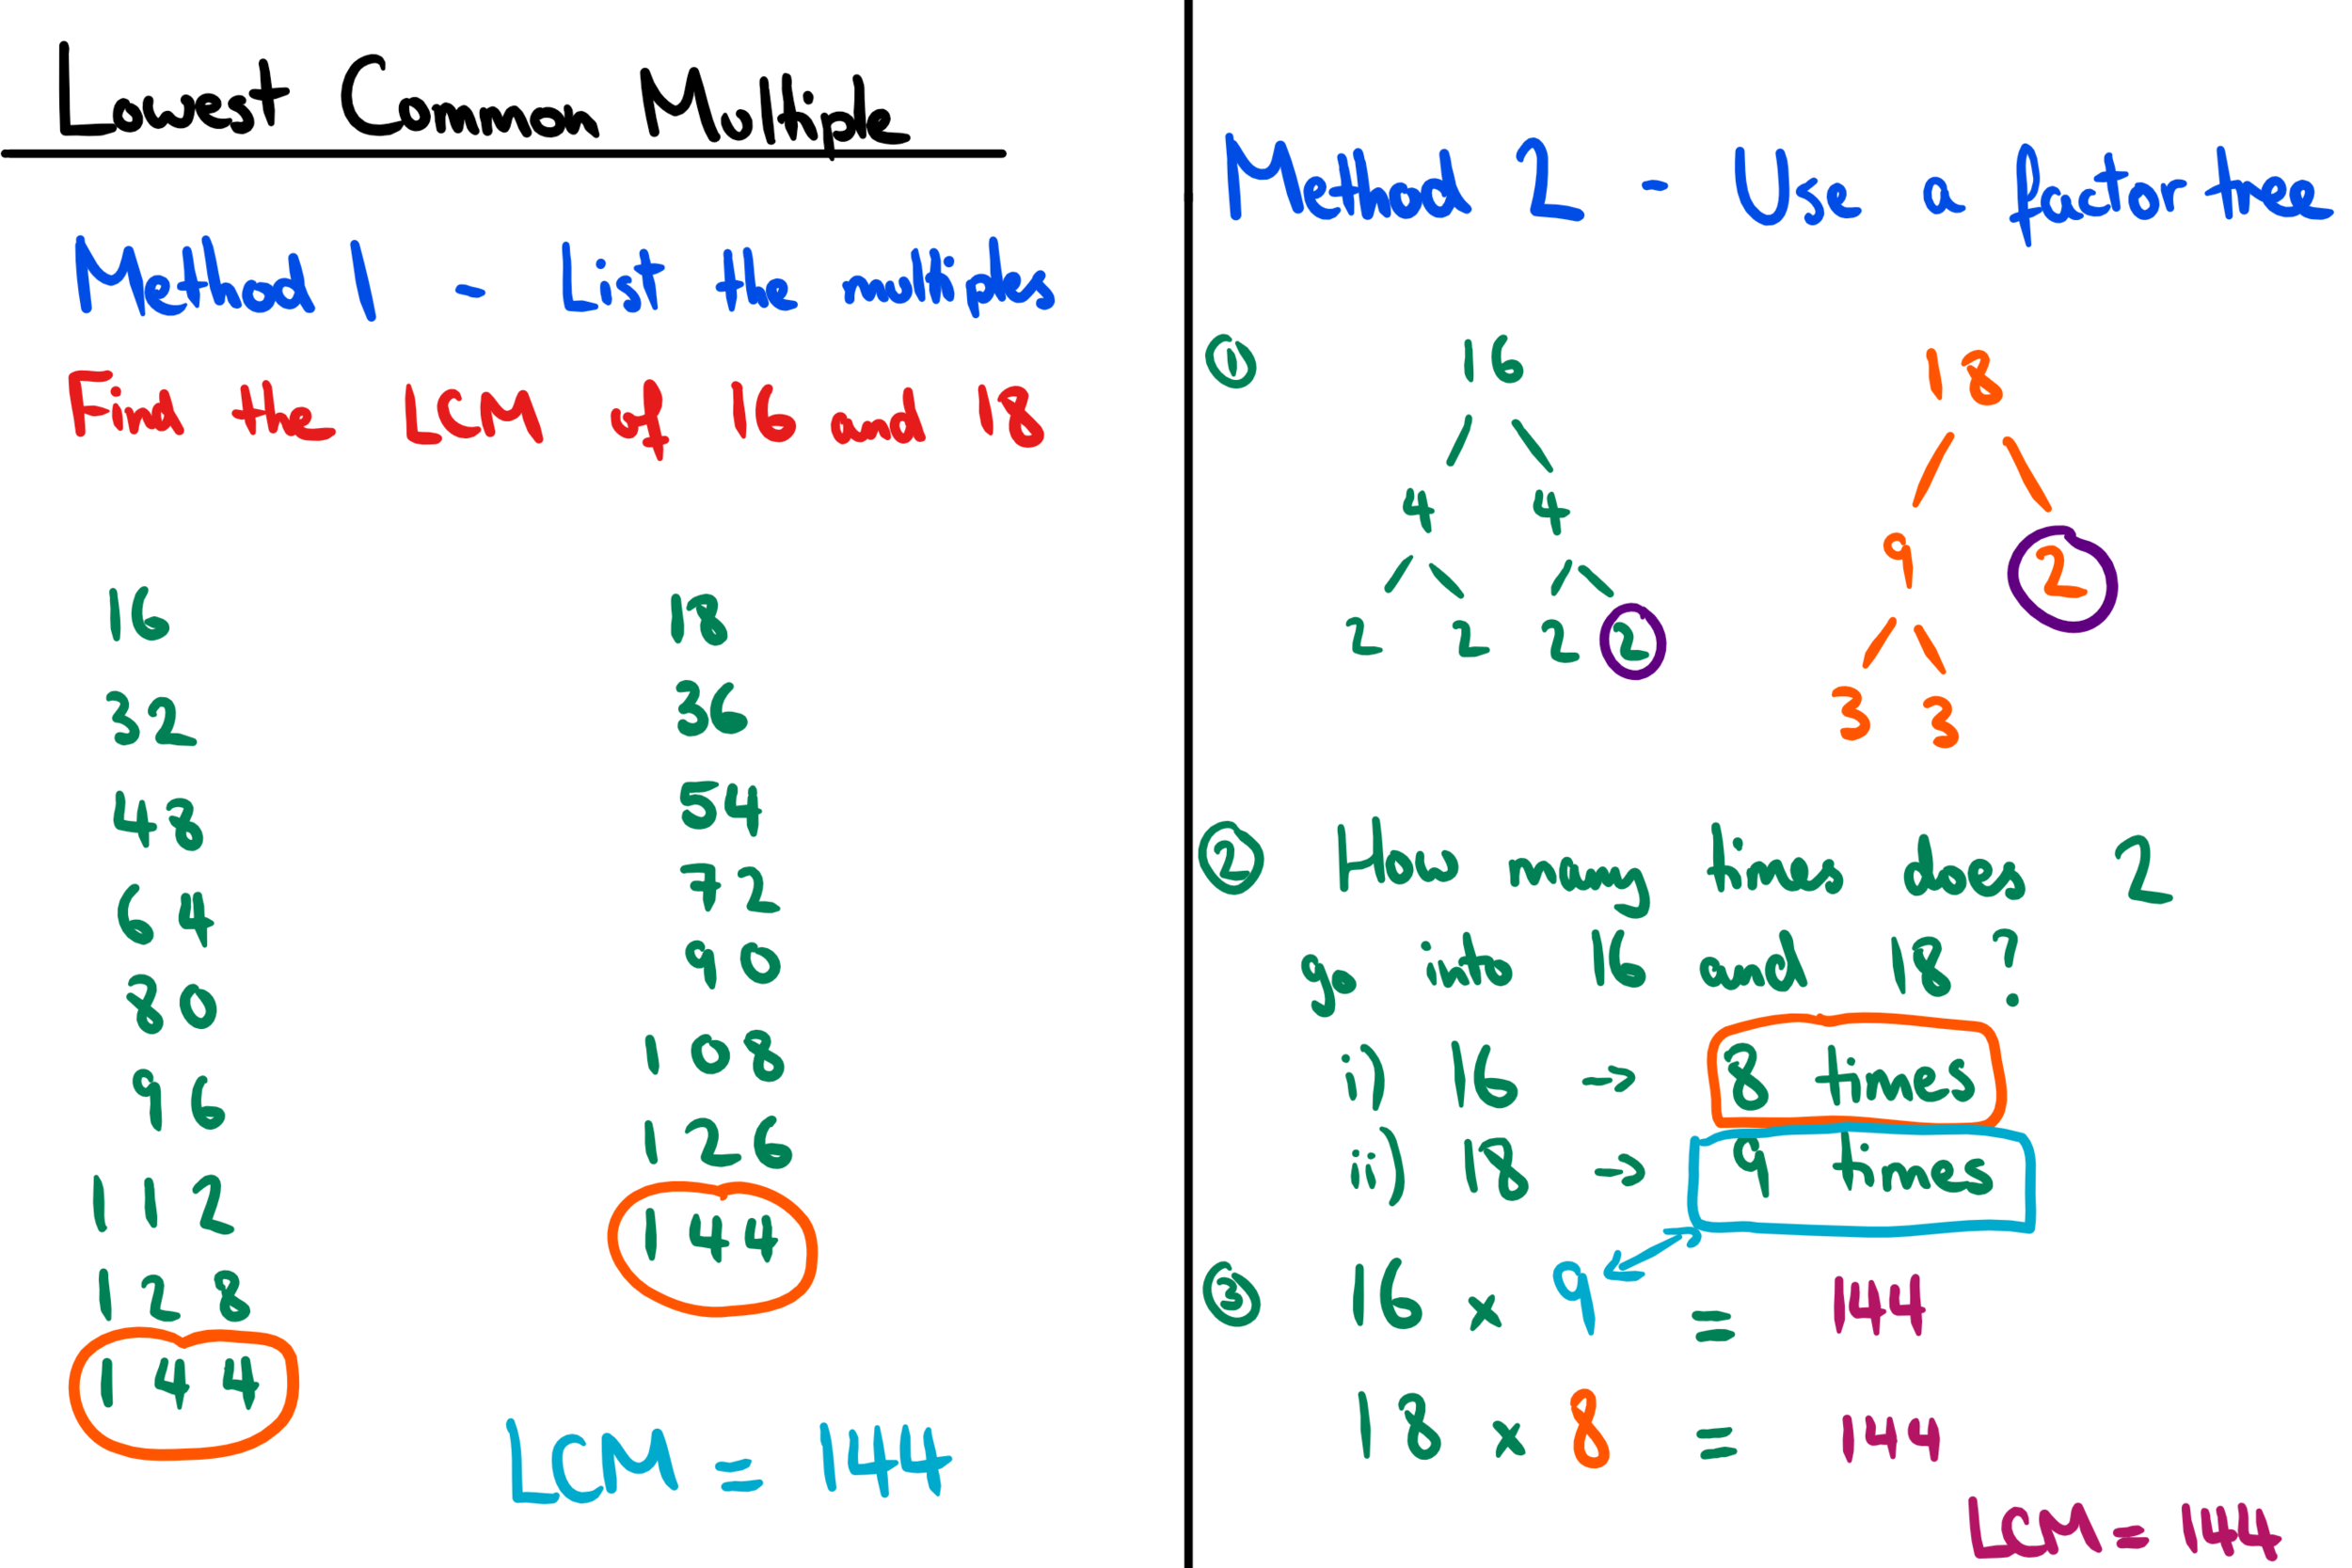 Lowest Common Multiple
Method 1 - List the multiples
Find the LCM of 16 and 18
16
32
48
64
80
96
112
128
144
18
36
54
72
90
108
126
144
LCM = 144
Method 2 - Use a factor tree
① 16 18
4 4
9 2
2 2 2 2
3 3
② How many times does 2
go into 16 and 18?
i) 16 → 8 times
ii) 18 → 9 times
③ 16 × 9 = 144
18 × 8 = 144
LCM = 144